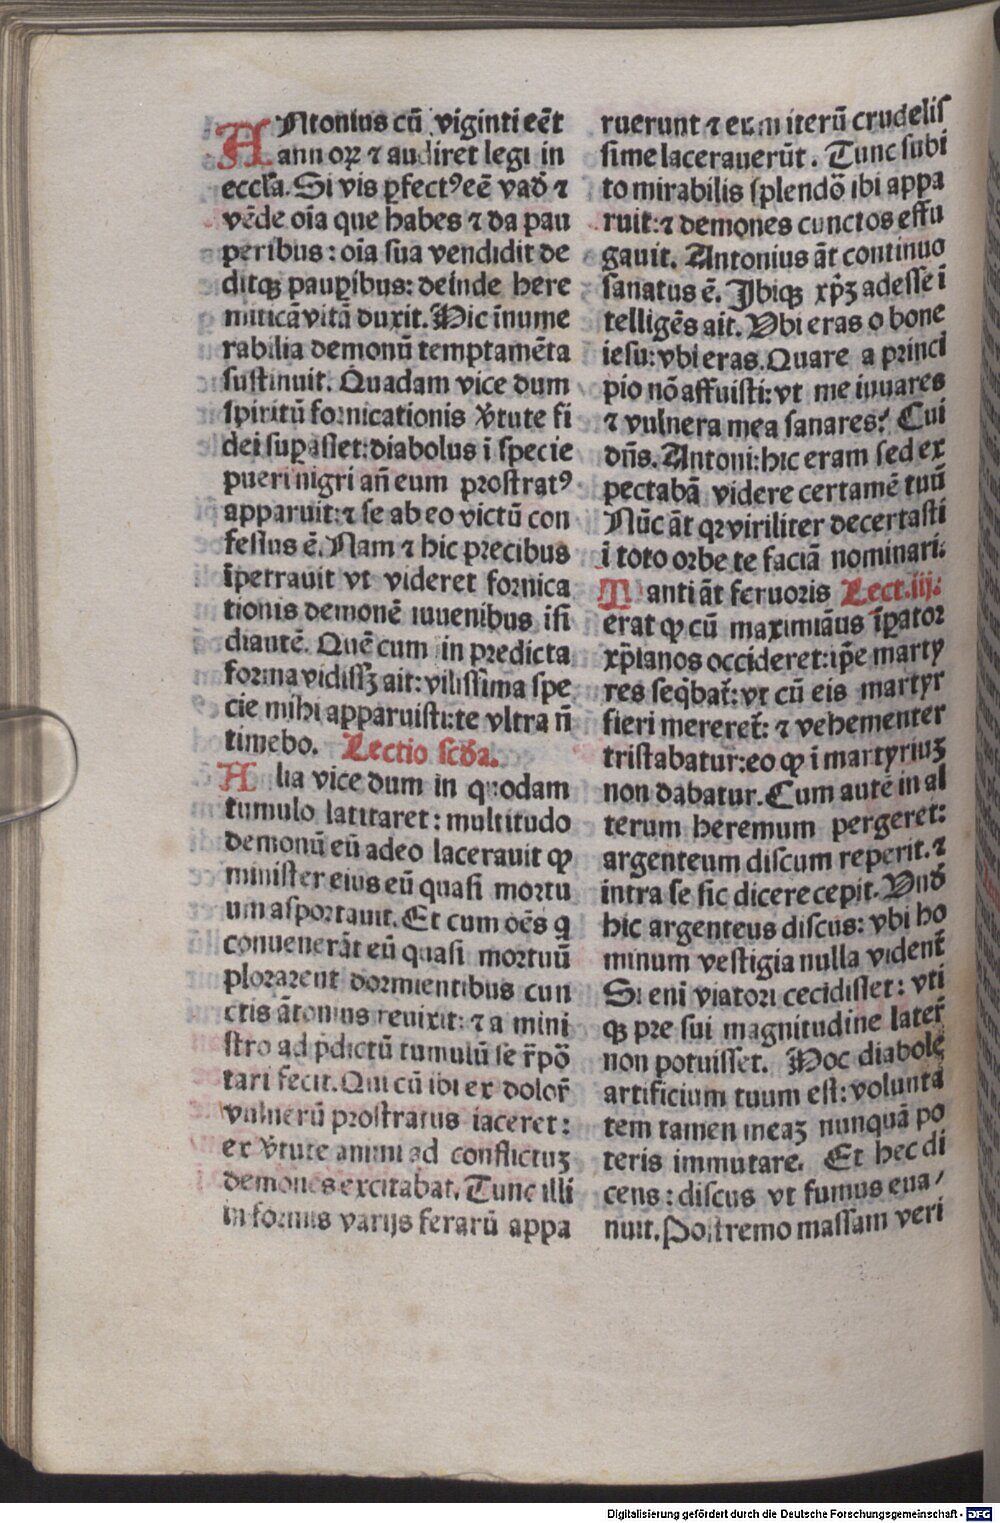 ANtonius cū viginti eēt
annoꝝ ⁊ audiret legi in
eccl̄a. Si vis ꝑfectꝰ eē vad̄ ⁊
vēde oīa que habes ⁊ da pau
peribus: oīa sua vendidit de
ditqꝫ pauꝑibus: deinde here
miticā vitā duxit. Hic īnume
rabilia demonū temptamēta
sustinuit. Quadam vice dum
spiritū fornicationis v̓tute fi
dei suꝑasset: diabolus ī specie
pueri nigri añ eum prostratꝰ
apparuit: ⁊ se ab eo victū con
fessus ē. Nam ⁊ hic precibus
īpetrauit vt videret fornica
tionis demonē iuuenibus isi
diantē. Quē cum in predicta
forma vidissꝫ ait: vilissima spe
cie mihi apparuisti: te vltra ñ
timebo. Lectio scd̄a.
Alia vice dum in quodam
tumulo latitaret: multitudo
demonū eū adeo lacerauit ꝙ
minister eius eū quasi mortu
um asportauit. Et cum oēs q
conuenerāt eū quasi mortuū
plorarent dormientibus cun
ctis ātonius reuixit: ⁊ a mini
stro ad p̄dictū tumulū se r̄pō
tari fecit. Qui cū ibi ex dolor̄
vulnerū prostratus iaceret:
ex v̓tute animi ad conflictuꝫ
demones excitabat. Tunc illi
in formis varijs ferarū appa
ruerunt ⁊ eum iterū crudelis
sime lacerauerūt. Tunc subi
to mirabilis splendō ibi appa
ruit: ⁊ demones cunctos effu
gauit. Antonius āt continuo
sanatus ē. Ibiqꝫ xp̄ꝫ adesse ī
telligēs ait. Vbi eras o bone
iesu: vbi eras. Quare a princi
pio nō affuisti: vt me iuuares
⁊ vulnera mea sanares? Cui
dn̄s. Antoni: hic eram sed ex
pectabā videre certamē tuū
Nūc āt qꝛ viriliter decertasti
ī toto orbe te faciā nominari.
Tanti āt feruoris Lect. iij.
erat ꝙ cū maximiāus īꝑator
xp̄ianos occideret: ip̄e marty
res seq̄bat̄: vt cū eis martyr
fieri mereret̄: ⁊ vehementer
tristabatur: eo ꝙ ī martyriuꝫ
non dabatur. Cum autē in al
terum heremum pergeret:
argenteum discum reperit. ⁊
intra se sic dicere cepit. Vnd̄
hic argenteus discus: vbi ho
minum vestigia nulla vident̄
Si enī viatori cecidisset: vti
qꝫ pre sui magnitudine later̄
non potuisset. Hoc diabole
artificium tuum est: volunta
tem tamen meaꝫ nunquā po
teris immutare. Et hec di
cens: discus vt fumus eua/
nuit. Postremo massam veri
Digitalisierung gefördert durch die Deutsche Forschungsgemeinschaft - DFG